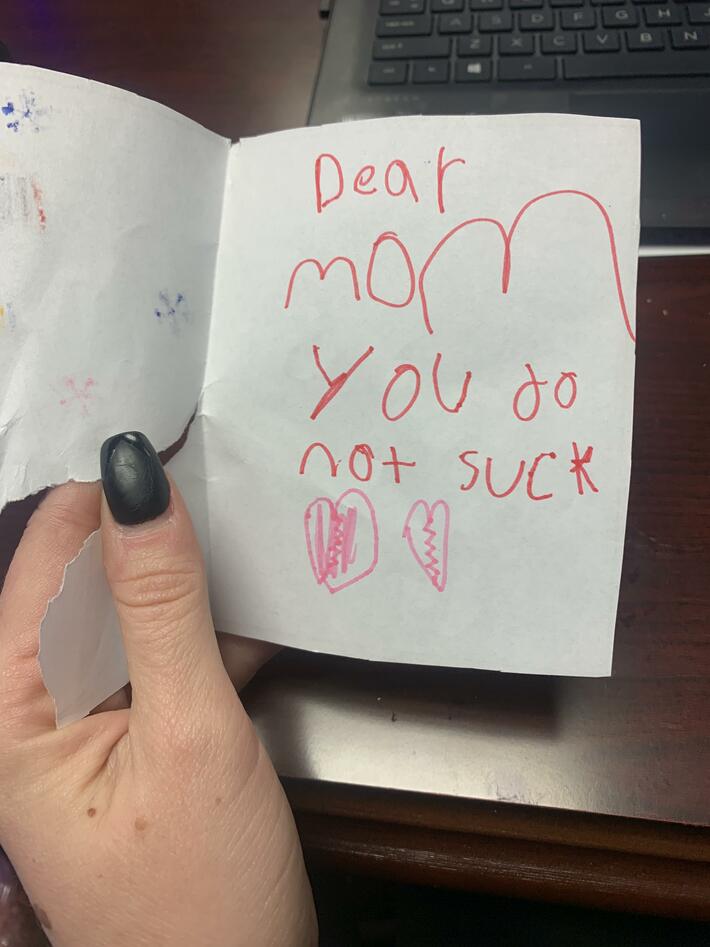 A S D F G H J K
Z X C V B N
Dear
mom
you do
not suck